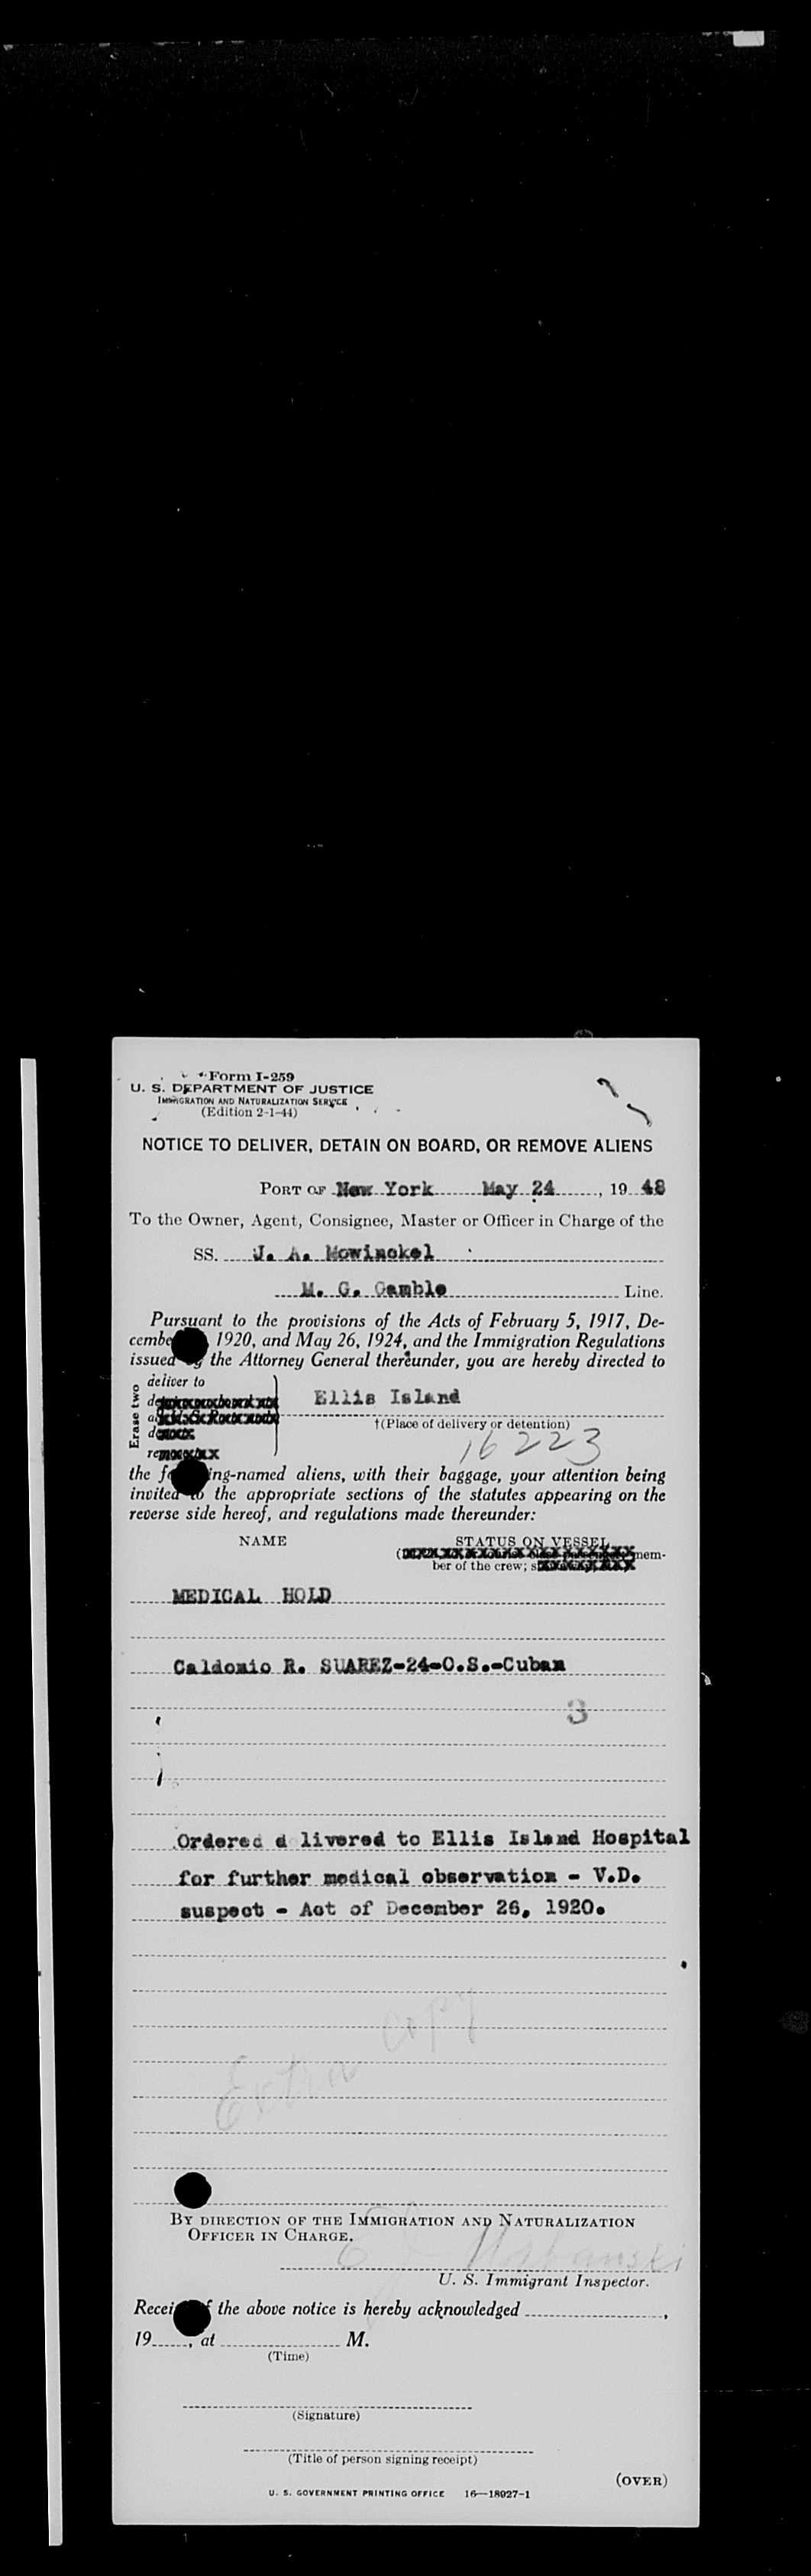 Form I-259
U. S. DEPARTMENT OF JUSTICE
IMMIGRATION AND NATURALIZATION SERVICE
(Edition 2-1-44)
NOTICE TO DELIVER, DETAIN ON BOARD, OR REMOVE ALIENS
PORT OF New York May 24, 19 48
To the Owner, Agent, Consignee, Master or Officer in Charge of the
SS. J. A. Mowinckel
M. G. Gamble Line.
Pursuant to the provisions of the Acts of February 5, 1917, De-
cembe 1920, and May 26, 1924, and the Immigration Regulations
issued by the Attorney General thereunder, you are hereby directed to
Erase two
deliver to
Ellis Island
†(Place of delivery or detention)
16223
the f ing-named aliens, with their baggage, your attention being
invited to the appropriate sections of the statutes appearing on the
reverse side hereof, and regulations made thereunder:
NAME STATUS ON VESSEL
( mem-
ber of the crew;
MEDICAL HOLD
Caldomio R. SUAREZ-24-O.S.-Cuban
3
Ordered d livered to Ellis Island Hospital
for further medical observation - V.D.
suspect - Act of December 26, 1920.
Extra copy
BY DIRECTION OF THE IMMIGRATION AND NATURALIZATION
OFFICER IN CHARGE.
U. S. Immigrant Inspector.
Recei f the above notice is hereby acknowledged ,
19 , at M.
(Time)
(Signature)
(Title of person signing receipt)
(OVER)
U. S. GOVERNMENT PRINTING OFFICE 16—18927-1